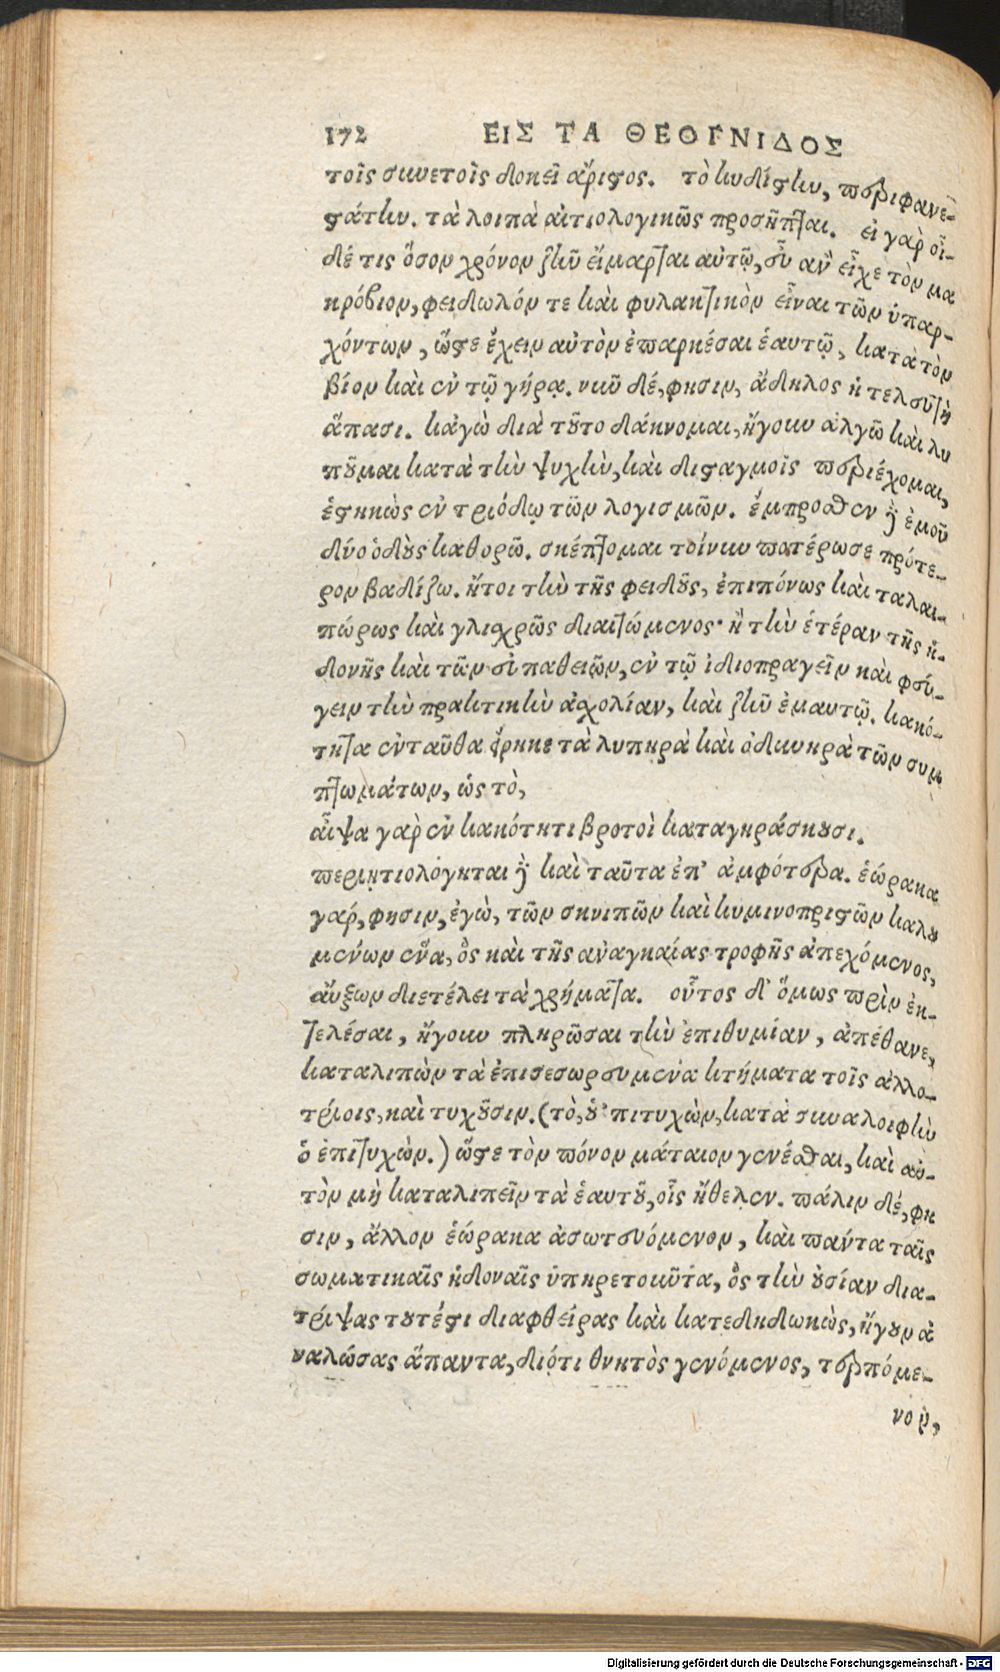 172 ΕΙΣ ΤΑ ΘΕΟΓΝΙΔΟΣ
τοῖς συνετοῖς δοκεῖ ἄριστος. τὸ κυδίστην, περιφανε-
στάτην. τὰ λοιπὰ αἰτιολογικῶς προσῆπται. εἰ γὰρ οἶ-
δέ τις ὅσον χρόνον ζῆν εἵμαρται αὐτῷ, οὖν ἂν εἶχε τὸν μα
κρόβιον, φειδωλόν τε καὶ φυλακτικὸν εἶναι τῶν ὑπαρ-
χόντων, ὥστε ἔχειν αὐτὸν ἐπαρκέσαι ἑαυτῷ, κατὰ τὸν
βίον καὶ ἐν τῷ γήρᾳ. νῦν δέ, φησιν, ἄδηλος ἡ τελευτὴ
ἅπασι. κἀγὼ διὰ τοῦτο δάκνομαι, ἤγουν ἀλγῶ καὶ λυ
ποῦμαι κατὰ τὴν ψυχὴν, καὶ δισταγμοῖς περιέχομαι,
ἑστηκὼς ἐν τριόδῳ τῶν λογισμῶν. ἔμπροσθεν δὲ ἐμοῦ
δύο ὁδοὺς καθορῶ. σκέπτομαι τοίνυν ποτέρωσε πρότε-
ρον βαδίζω. ἤτοι τὴν τῆς φειδοῦς, ἐπιπόνως καὶ ταλαι-
πώρως καὶ γλισχρῶς διαιτώμενος· ἢ τὴν ἑτέραν τῆς ἡ-
δονῆς καὶ τῶν εὐπαθειῶν, ἐν τῷ ἰδιοπραγεῖν καὶ φεύ-
γειν τὴν πρακτικὴν ἀσχολίαν, καὶ ζῆν ἐμαυτῷ. κακό-
τητα ἐνταῦθα εἴρηκε τὰ λυπηρὰ καὶ ὀδυνηρὰ τῶν συμ
πτωμάτων, ὡς τὸ,
αἶψα γὰρ ἐν κακότητι βροτοὶ καταγηράσκουσι.
περιῃτιολόγηται δὲ καὶ ταῦτα ἐπ' ἀμφότερα. ἑώρακα
γάρ, φησιν, ἐγὼ, τῶν σκνιπῶν καὶ κυμινοπριστῶν καλου
μένων ἕνα, ὃς καὶ τῆς ἀναγκαίας τροφῆς ἀπεχόμενος,
αὔξων διετέλει τὰ χρήματα. οὗτος δ' ὅμως πρὶν ἐκ-
τελέσαι, ἤγουν πληρῶσαι τὴν ἐπιθυμίαν, ἀπέθανε,
καταλιπὼν τὰ ἐπισεσωρευμένα κτήματα τοῖς ἀλλο-
τρίοις, καὶ τυχοῦσιν. (τὸ, οὑ' πιτυχὼν, κατὰ συναλοιφὴν
ὁ ἐπιτυχὼν.) ὥστε τὸν πόνον μάταιον γενέσθαι, καὶ αὐ-
τὸν μὴ καταλιπεῖν τὰ ἑαυτοῦ, οἷς ἤθελεν. πάλιν δέ, φη
σιν, ἄλλον ἑώρακα ἀσωτευόμενον, καὶ πάντα ταῖς
σωματικαῖς ἡδοναῖς ὑπηρετοῦντα, ὃς τὴν οὐσίαν δια-
τρίψας τουτέστι διαφθείρας καὶ κατεδηδωκὼς, ἤγουν ἀ
ναλώσας ἅπαντα, διότι θνητὸς γενόμενος, τερπόμε-
νον,
Digitalisierung gefördert durch die Deutsche Forschungsgemeinschaft - DFG